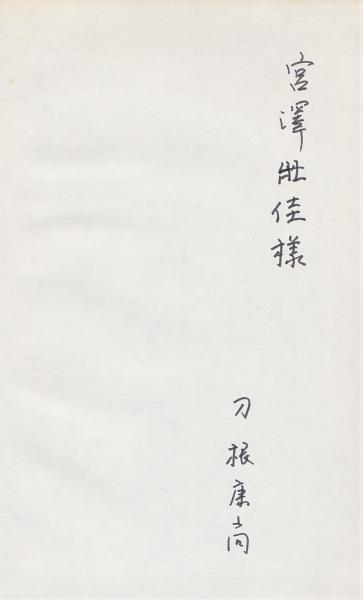 宮澤壯佳様
刀根康尚